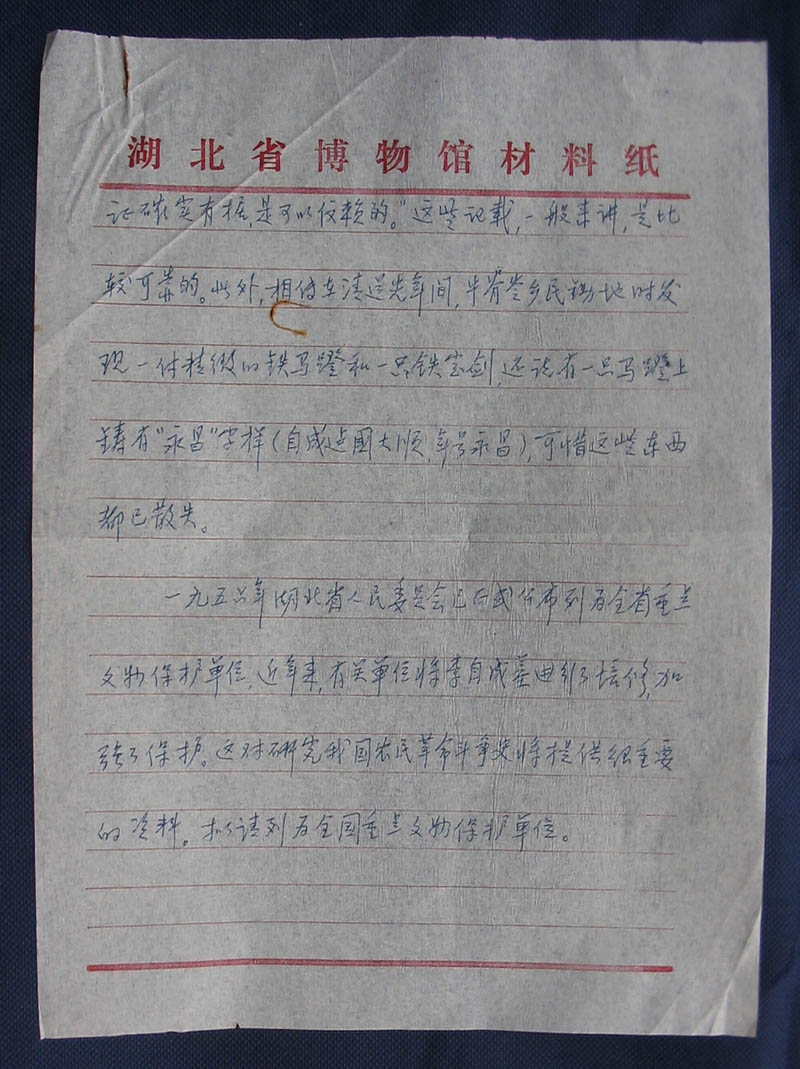 湖北省博物馆材料纸
证确实有据,是可以依赖的。"这些记载,一般来讲,是比
较可靠的。此外,相传在清道光年间,牛脊岺乡民耕地时发
现一付精緻的铁马蹬和一只铁宝剑,还说有一只马蹬上
铸有"永昌"字样(自成建国大顺,年号永昌),可惜这些东西
都已散失。
一九五六年湖北省人民委员会已正式公布列为全省重点
文物保护单位,近年来,有关单位将李自成墓进行了培修,加
强了保护。这对研究我国农民革命斗争史将提供很重要
的资料。拟请列为全国重点文物保护单位。